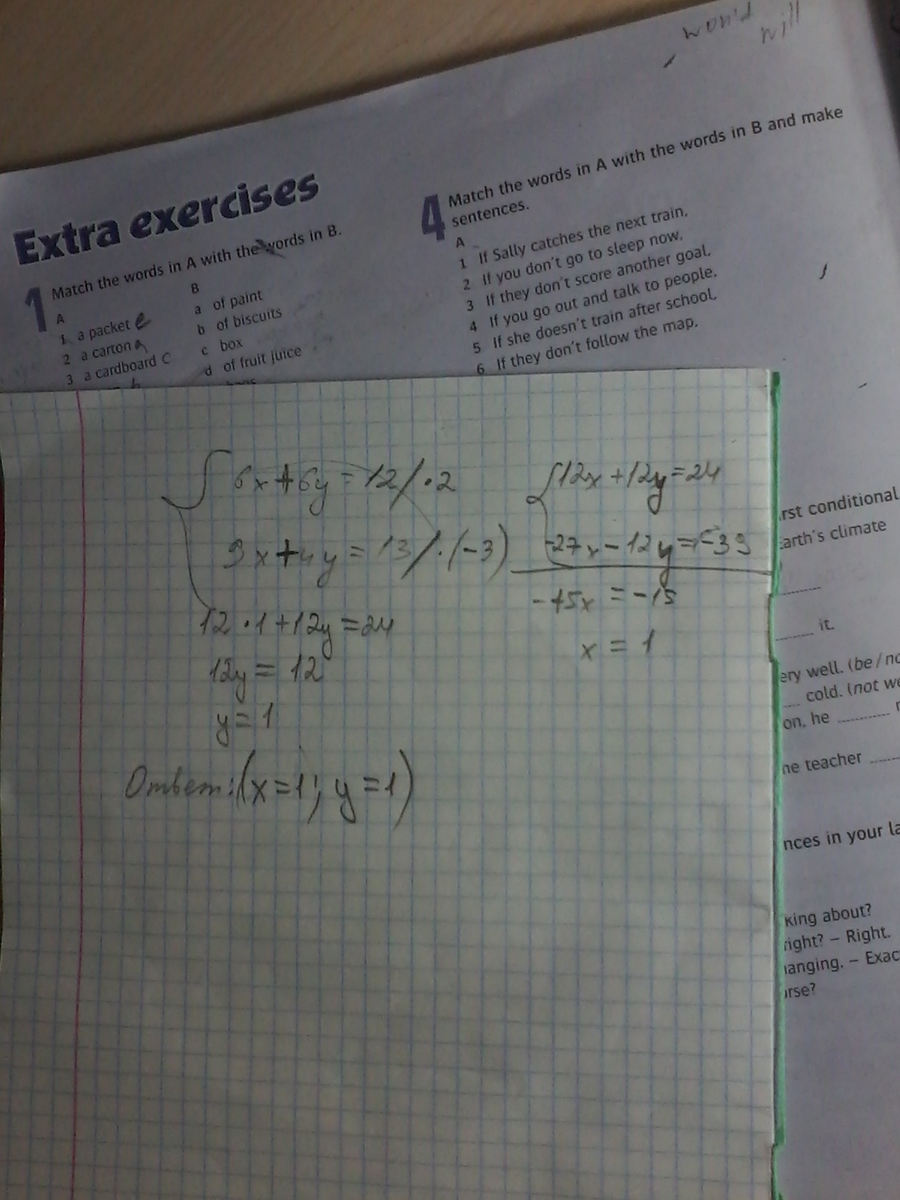 would will
Extra exercises
1 Match the words in A with the words in B.
A
1 a packet e
2 a carton a
3 a cardboard c
B
a of paint
b of biscuits
c box
d of fruit juice
4 Match the words in A with the words in B and make
sentences.
A
1 If Sally catches the next train,
2 If you don't go to sleep now,
3 If they don't score another goal,
4 If you go out and talk to people,
5 If she doesn't train after school,
6 If they don't follow the map,
6x+6y=12/·2
9x+4y=13/·(-3)
12·1+12y=24
12y=12
y=1
Ответ:(x=1; y=1)
12x+12y=24
-27x-12y=-39
-15x=-15
x=1
rst conditional
arth's climate
it.
ery well. (be / no
cold. (not we
on, he
he teacher
nces in your la
king about?
right? – Right.
anging. – Exac
rse?